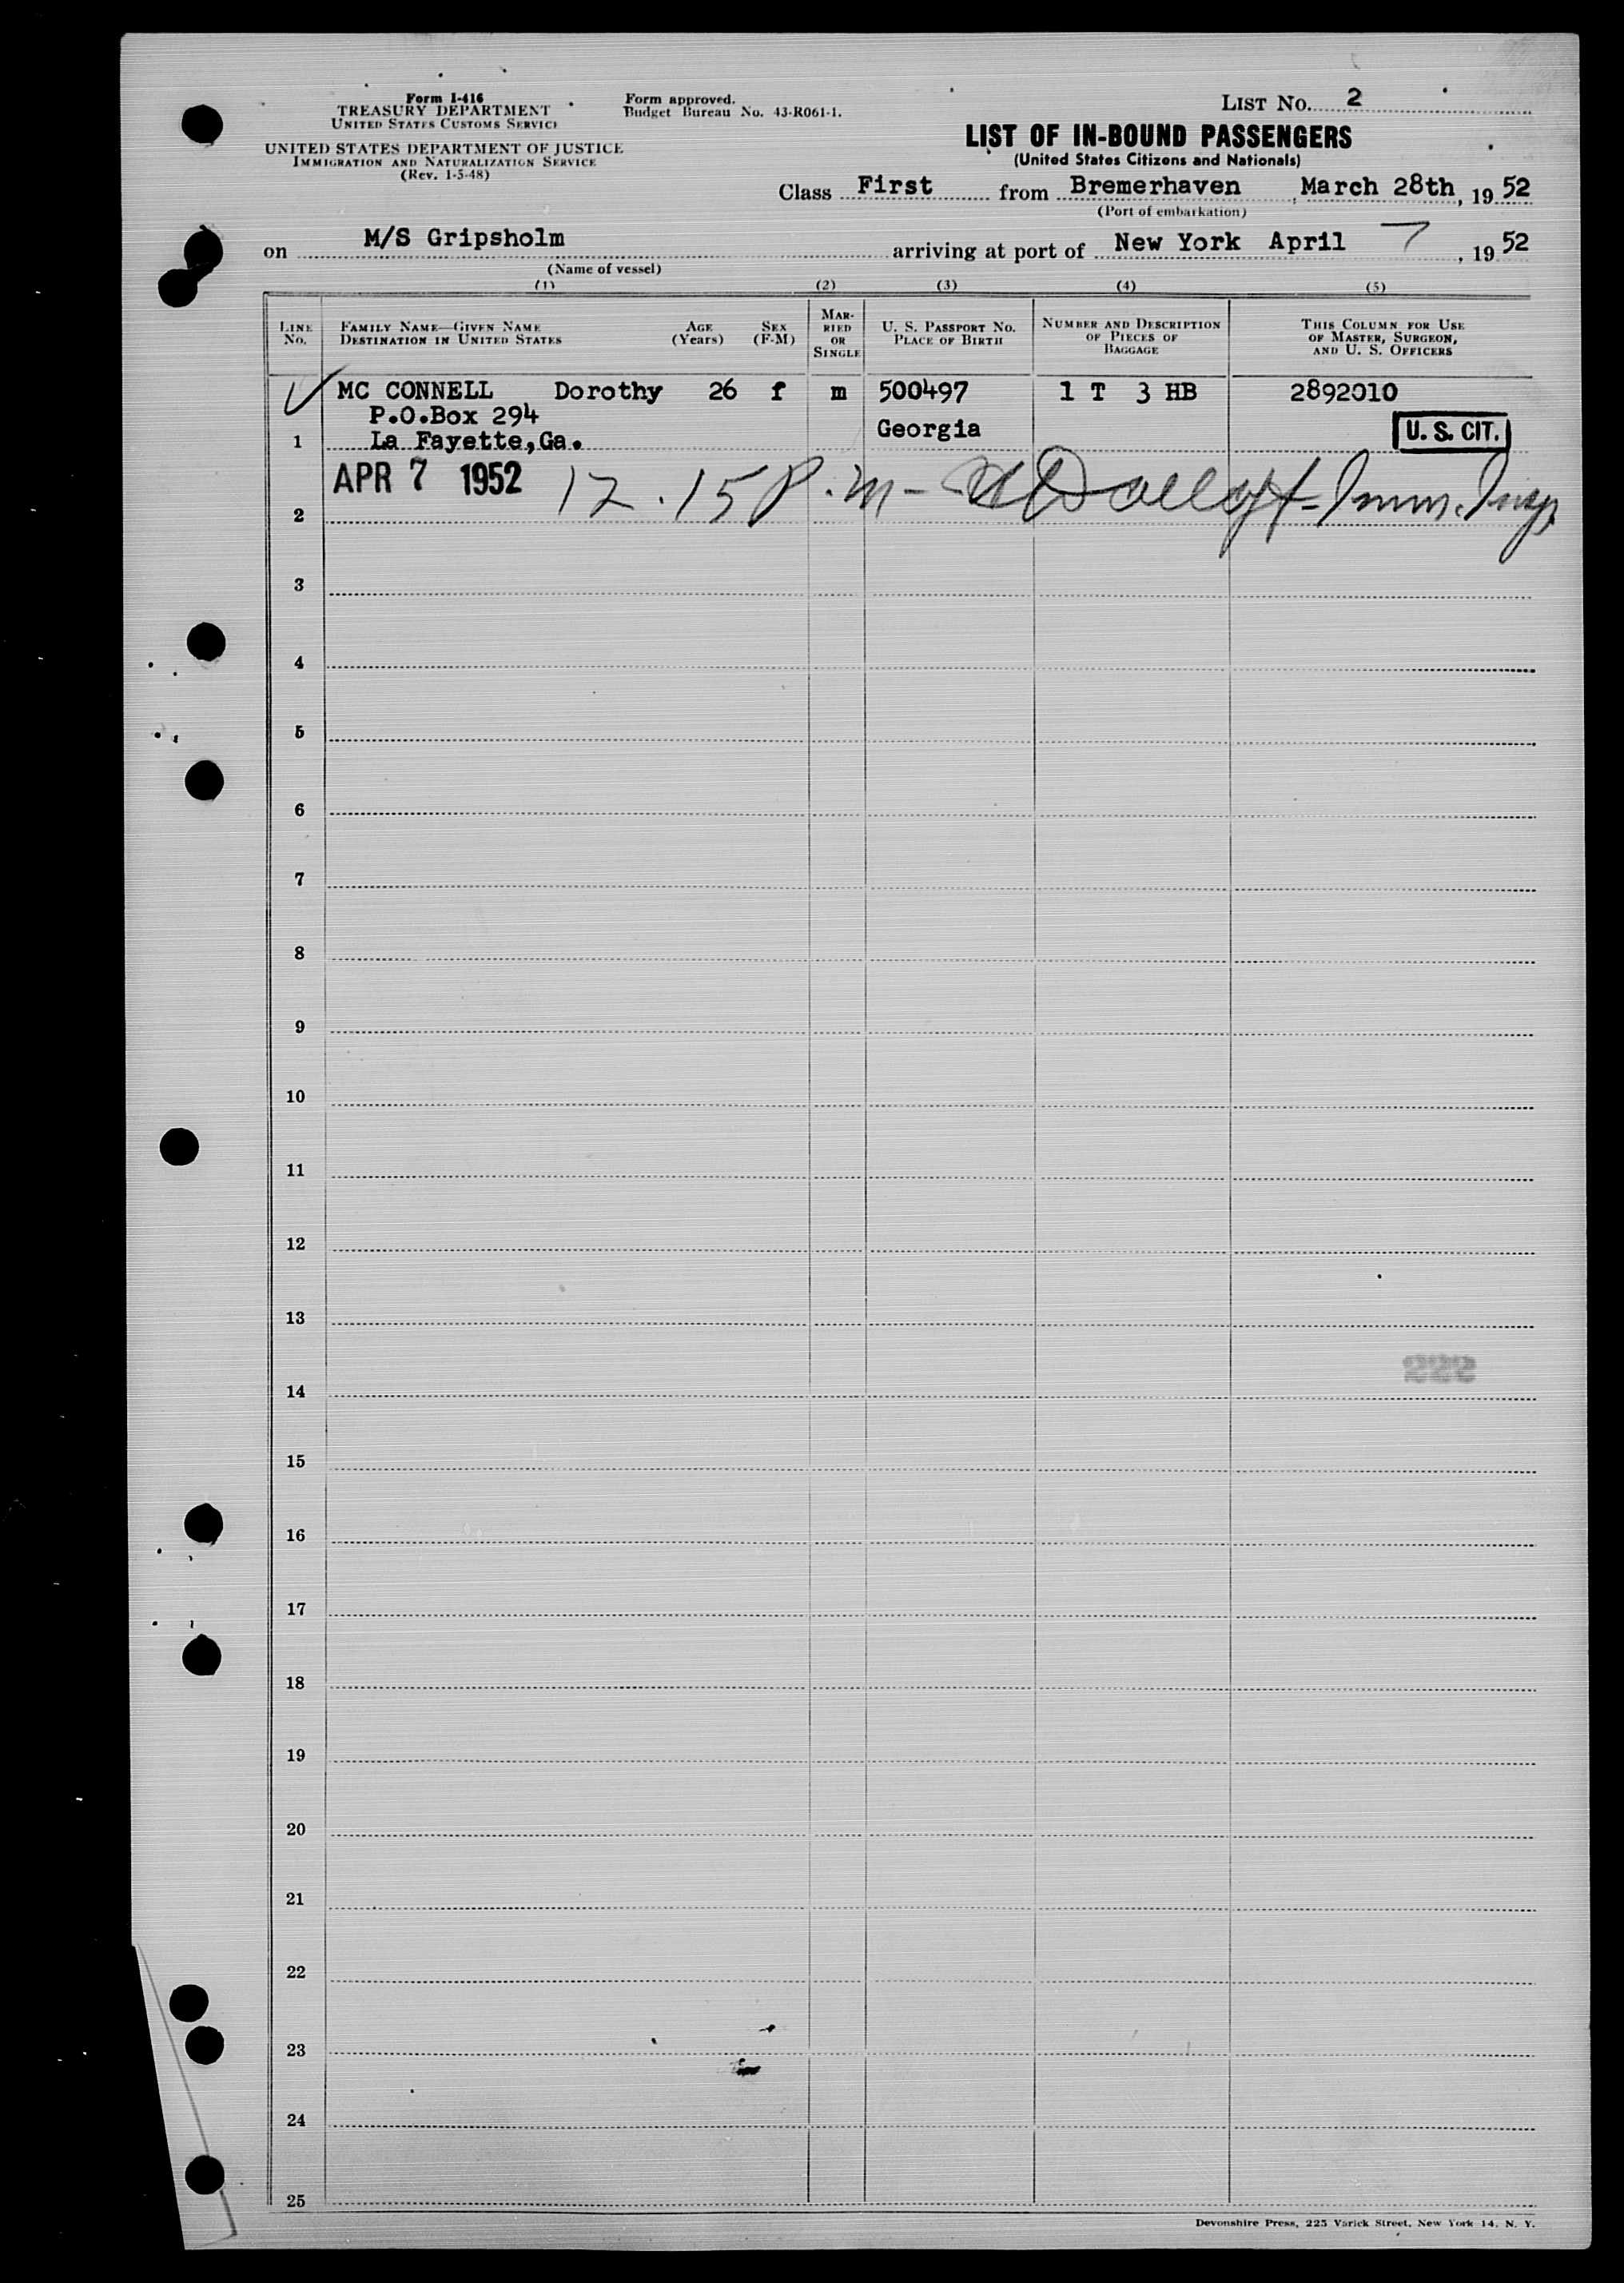 Form I-416
TREASURY DEPARTMENT
UNITED STATES CUSTOMS SERVICE
UNITED STATES DEPARTMENT OF JUSTICE
IMMIGRATION AND NATURALIZATION SERVICE
(Rev. 1-5-48)
Form approved.
Budget Bureau No. 43-R061-1.
LIST No. 2
LIST OF IN-BOUND PASSENGERS
(United States Citizens and Nationals)
Class First from Bremerhaven, March 28th, 1952
(Port of embarkation)
on M/S Gripsholm arriving at port of New York April 7, 1952
(Name of vessel)
(1) (2) (3) (4) (5)
LINE No.
FAMILY NAME—GIVEN NAME
DESTINATION IN UNITED STATES
AGE (Years)
SEX (F-M)
MAR-
RIED
OR
SINGLE
U. S. PASSPORT No.
PLACE OF BIRTH
NUMBER AND DESCRIPTION
OF PIECES OF
BAGGAGE
THIS COLUMN FOR USE
OF MASTER, SURGEON,
AND U. S. OFFICERS
MC CONNELL Dorothy 26 f m 500497 1 T 3 HB 2892010
P.O.Box 294
Georgia U. S. CIT.
1 La Fayette,Ga.
APR 7 1952 12.15 P.m - Imm. Insp
2
3
4
5
6
7
8
9
10
11
12
13
14
15
16
17
18
19
20
21
22
23
24
25
Devonshire Press, 225 Varick Street, New York 14, N. Y.